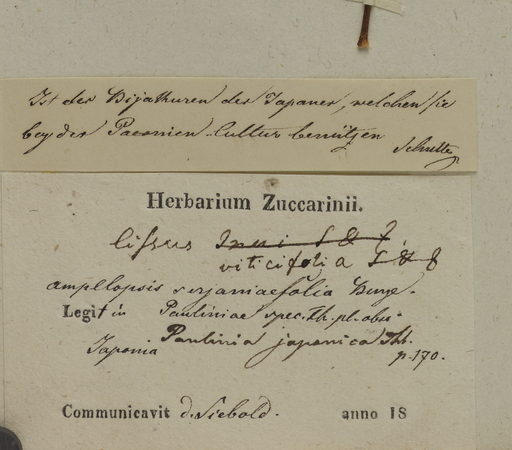 Ist der Bijakuren der Japaner, welchen sie
bey der Paeonien-Cultur benützen
Herbarium Zuccarinii.
Cissus S & Z
viticifolia S & Z
ampelopsis serjaniaefolia Bunge.
Legit in Pauliniae spec. Th. pl. obs.
Japonia Paulinia japonica Thb.
p. 170.
Communicavit d. Siebold. anno 18